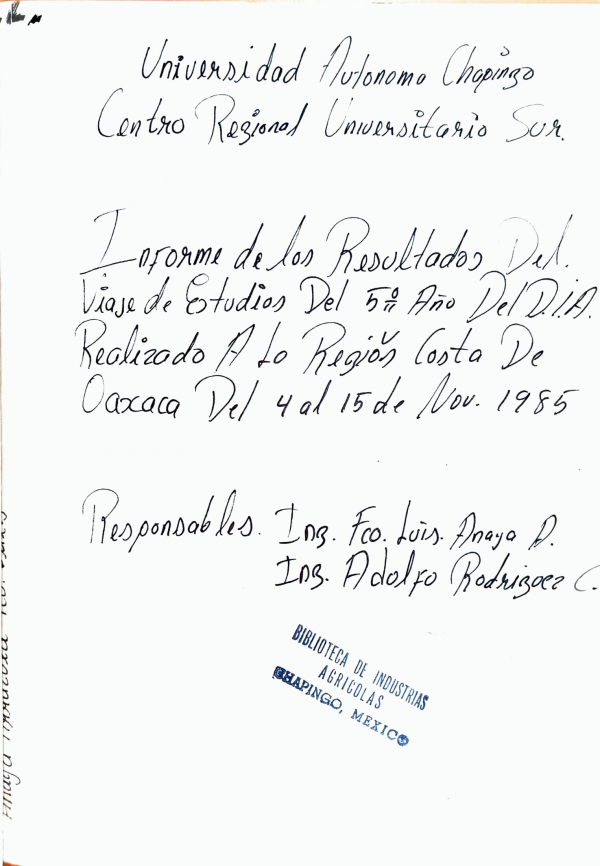 Universidad Autonoma Chapingo
Centro Regional Universitario Sur.
Informe de los Resultados Del.
Viaje de Estudios Del 5º Año Del D.I.A.
Realizado A La Región Costa De
Oaxaca Del 4 al 15 de Nov. 1985
Responsables. Ing. Fco. Luis. Anaya A.
Ing. Adolfo Rodriguez C.
BIBLIOTECA DE INDUSTRIAS
AGRICOLAS
CHAPINGO, MEXICO